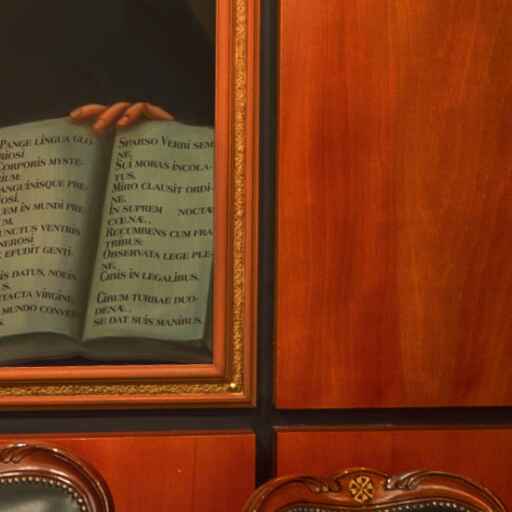 PANGE LINGUA GLO-
RIOSI
CORPORIS MYSTE-
RIUM:
ANGUINISQUE PRE-
IOSI,
EM IN MUNDI PRE-
UM.
UNCTUS VENTRIS
NEROSI
EFUDIT GENTI-
IS DATUS, NOBIS
S.
TACTA VIRGINE
MUNDO CONVER-
SPARSO VERBI SEM
NE.
SUI MORAS INCOLA-
TUS.
MIRO CLAUSIT ORDI-
NE.
IN SUPREM NOCTÆ
CŒNÆ..
RECUMBENS CUM FRA
TRIBUS:
OBSERVATA LEGE PLE-
NE.
CIBIS IN LEGALIBUS.
CIBUM TURBAE DUO-
DENÆ..
SE DAT SUIS MANIBUS.